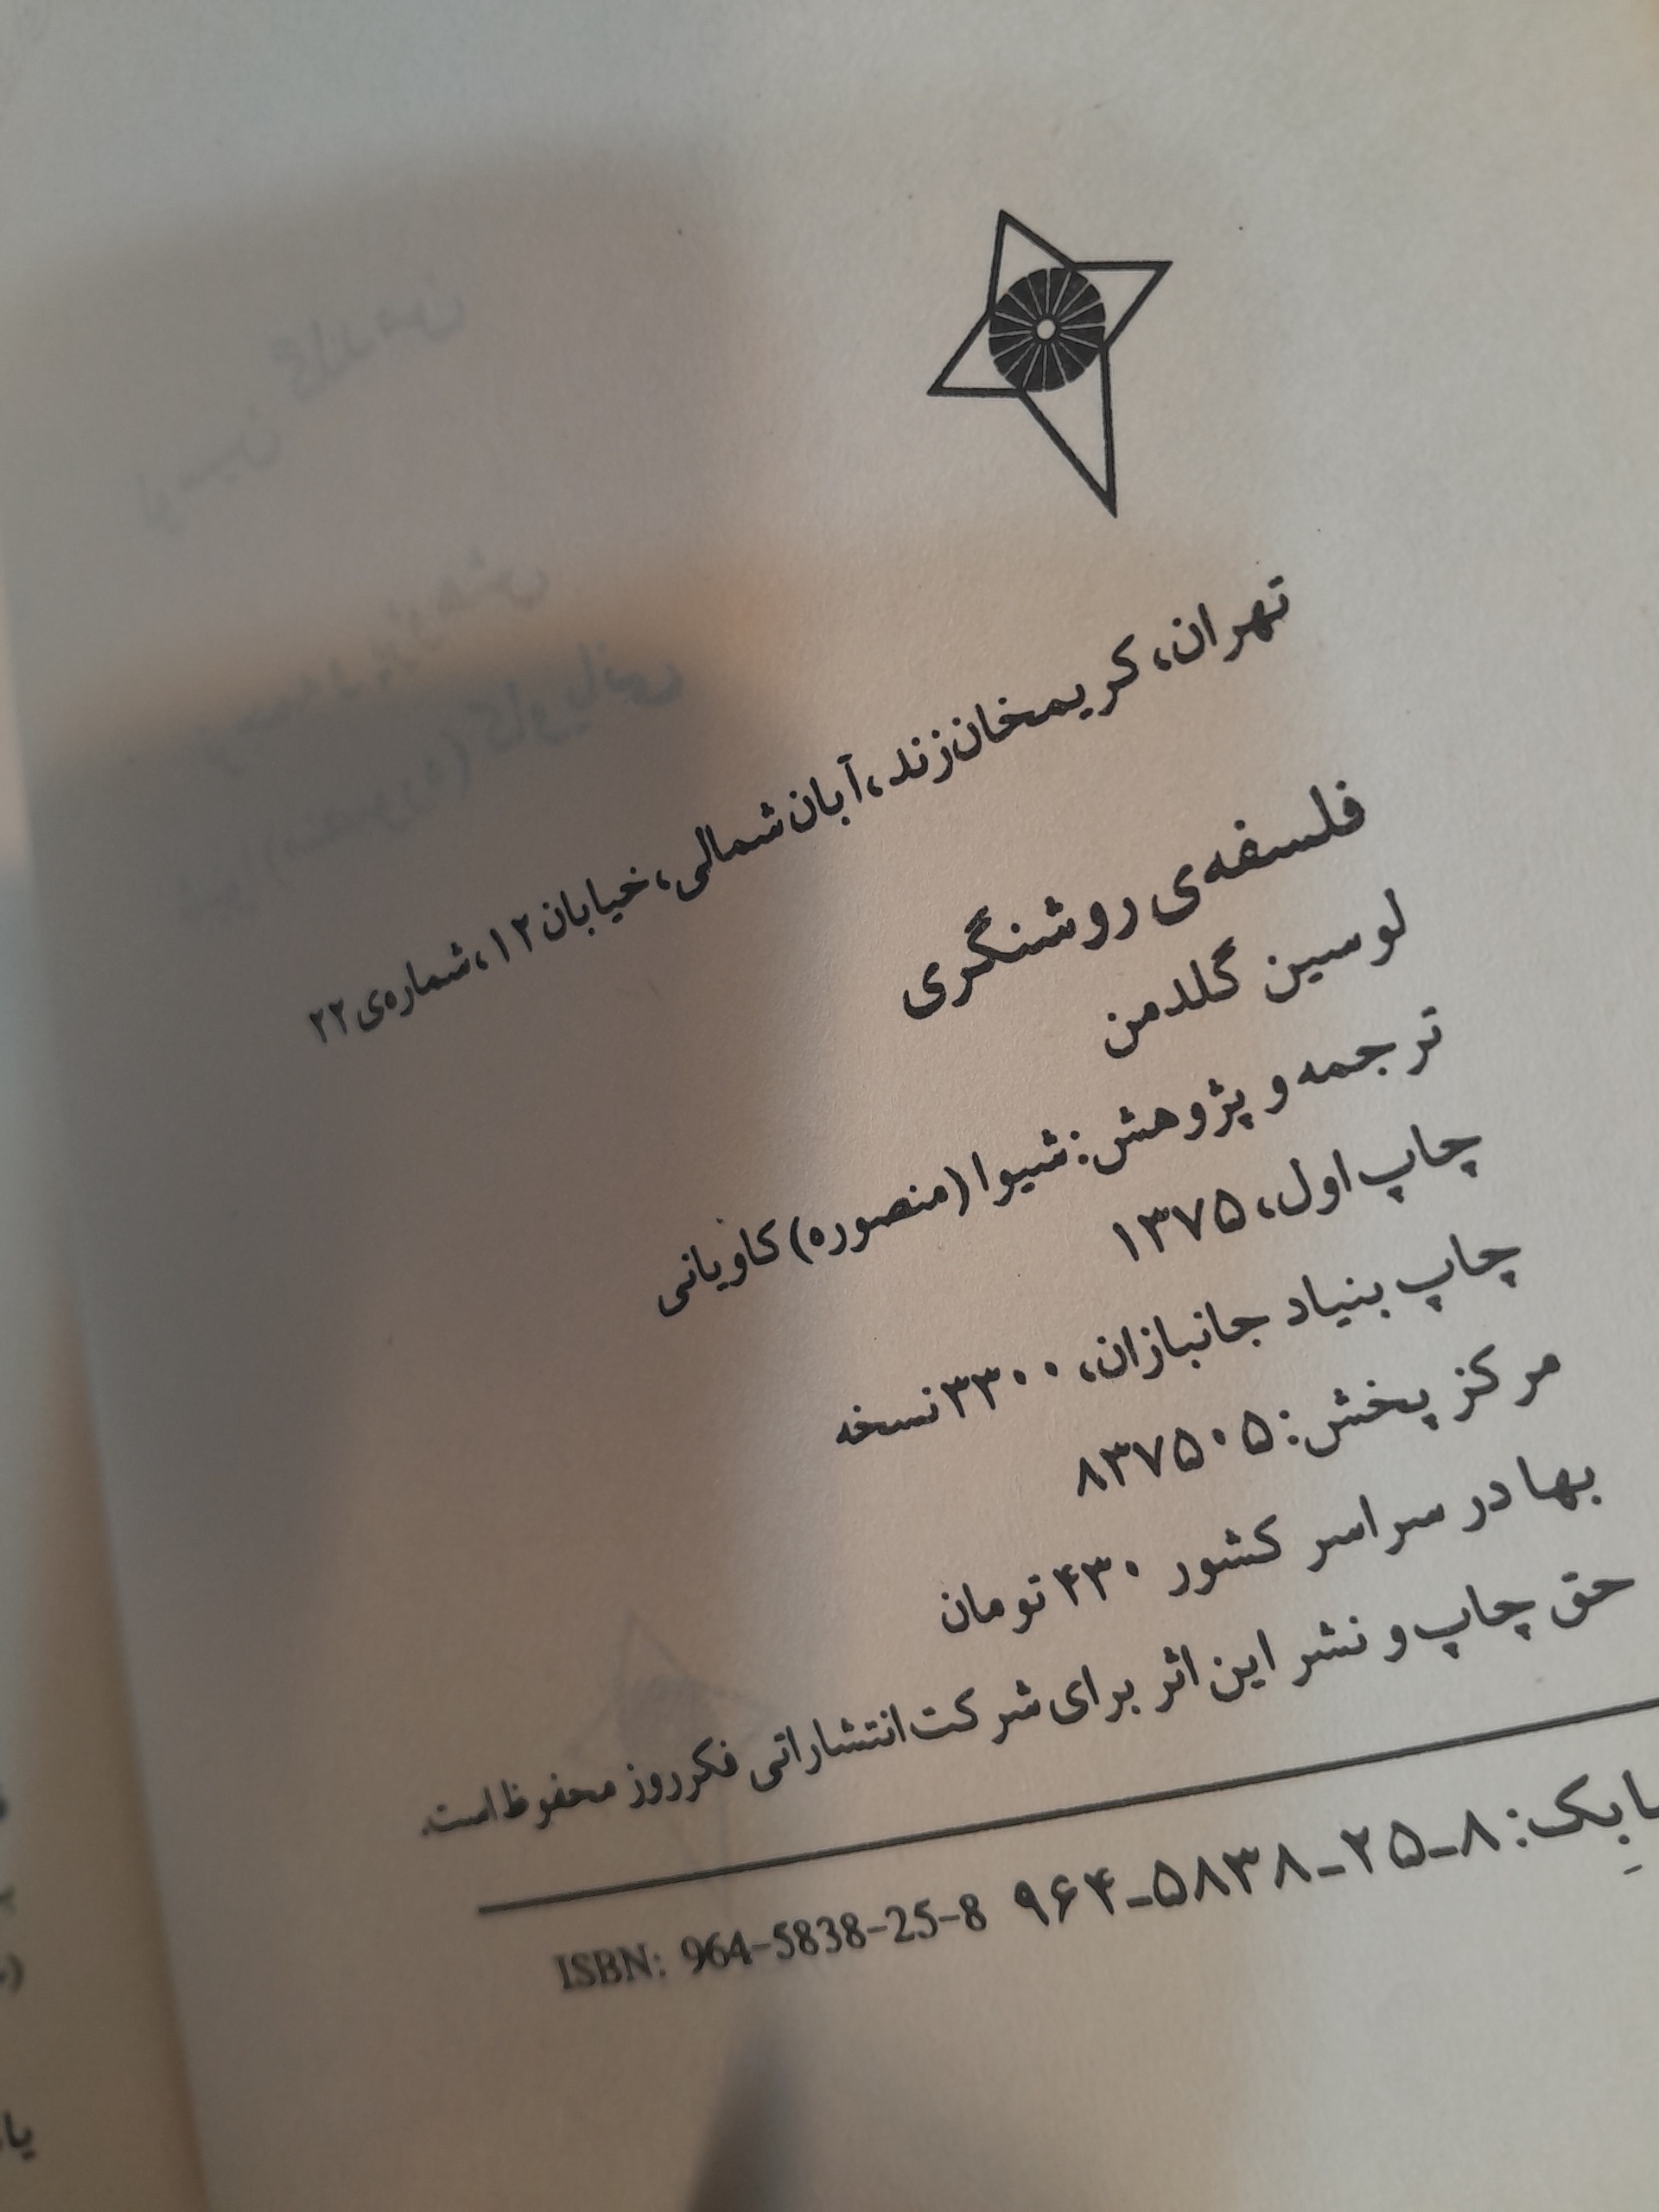 تهران، کریمخان‌زند، آبان‌شمالی، خیابان ۱۲، شماره‌ی ۲۲
فلسفه‌ی روشنگری
لوسین گلدمن
ترجمه و پژوهش: شیوا (منصوره) کاویانی
چاپ اول، ۱۳۷۵
چاپ بنیاد جانبازان، ۳۳۰۰ نسخه
مرکز پخش: ۸۳۷۵۰۵
بها در سراسر کشور ۴۳۰ تومان
حق چاپ و نشر این اثر برای شرکت انتشاراتی فکر روز محفوظ است.
ISBN: 964-5838-25-8 ۹۶۴-۵۸۳۸-۲۵-۸